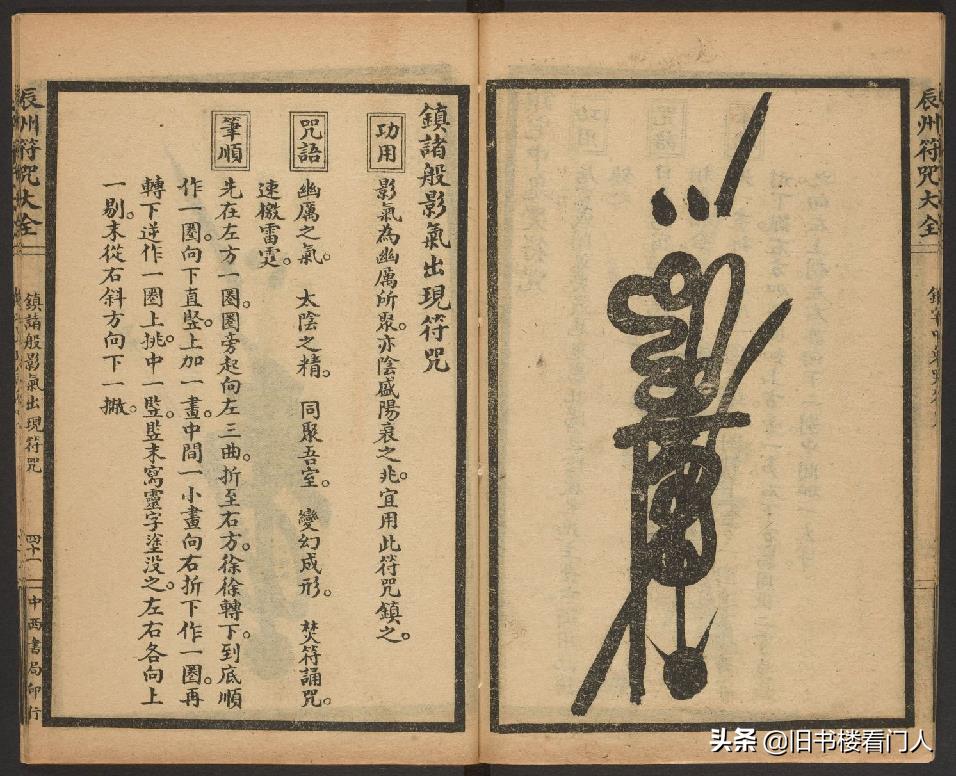 辰州符咒大全
鎮諸般影氣出現符咒
功用
影氣為幽厲所聚。亦陰盛陽衰之兆。宜用此符咒鎮之。
咒語
幽厲之氣。 太陰之精。 同聚吾室。 變幻成形。 焚符誦咒。
速檄雷霆。
筆順
先在左方一圈。圈旁起向左三曲。折至右方。徐徐轉下。到底順
作一圈。向下直豎。上加一畫。中間一小畫向右折下作一圈。再
轉下逆作一圈上挑。中一豎。豎末寫靈字塗没之。左右各向上
一剔。末從右斜方向下一撇。
辰州符咒大全
鎮諸般影氣出現符咒
四十一
中西書局印行
头条 @旧书楼看门人